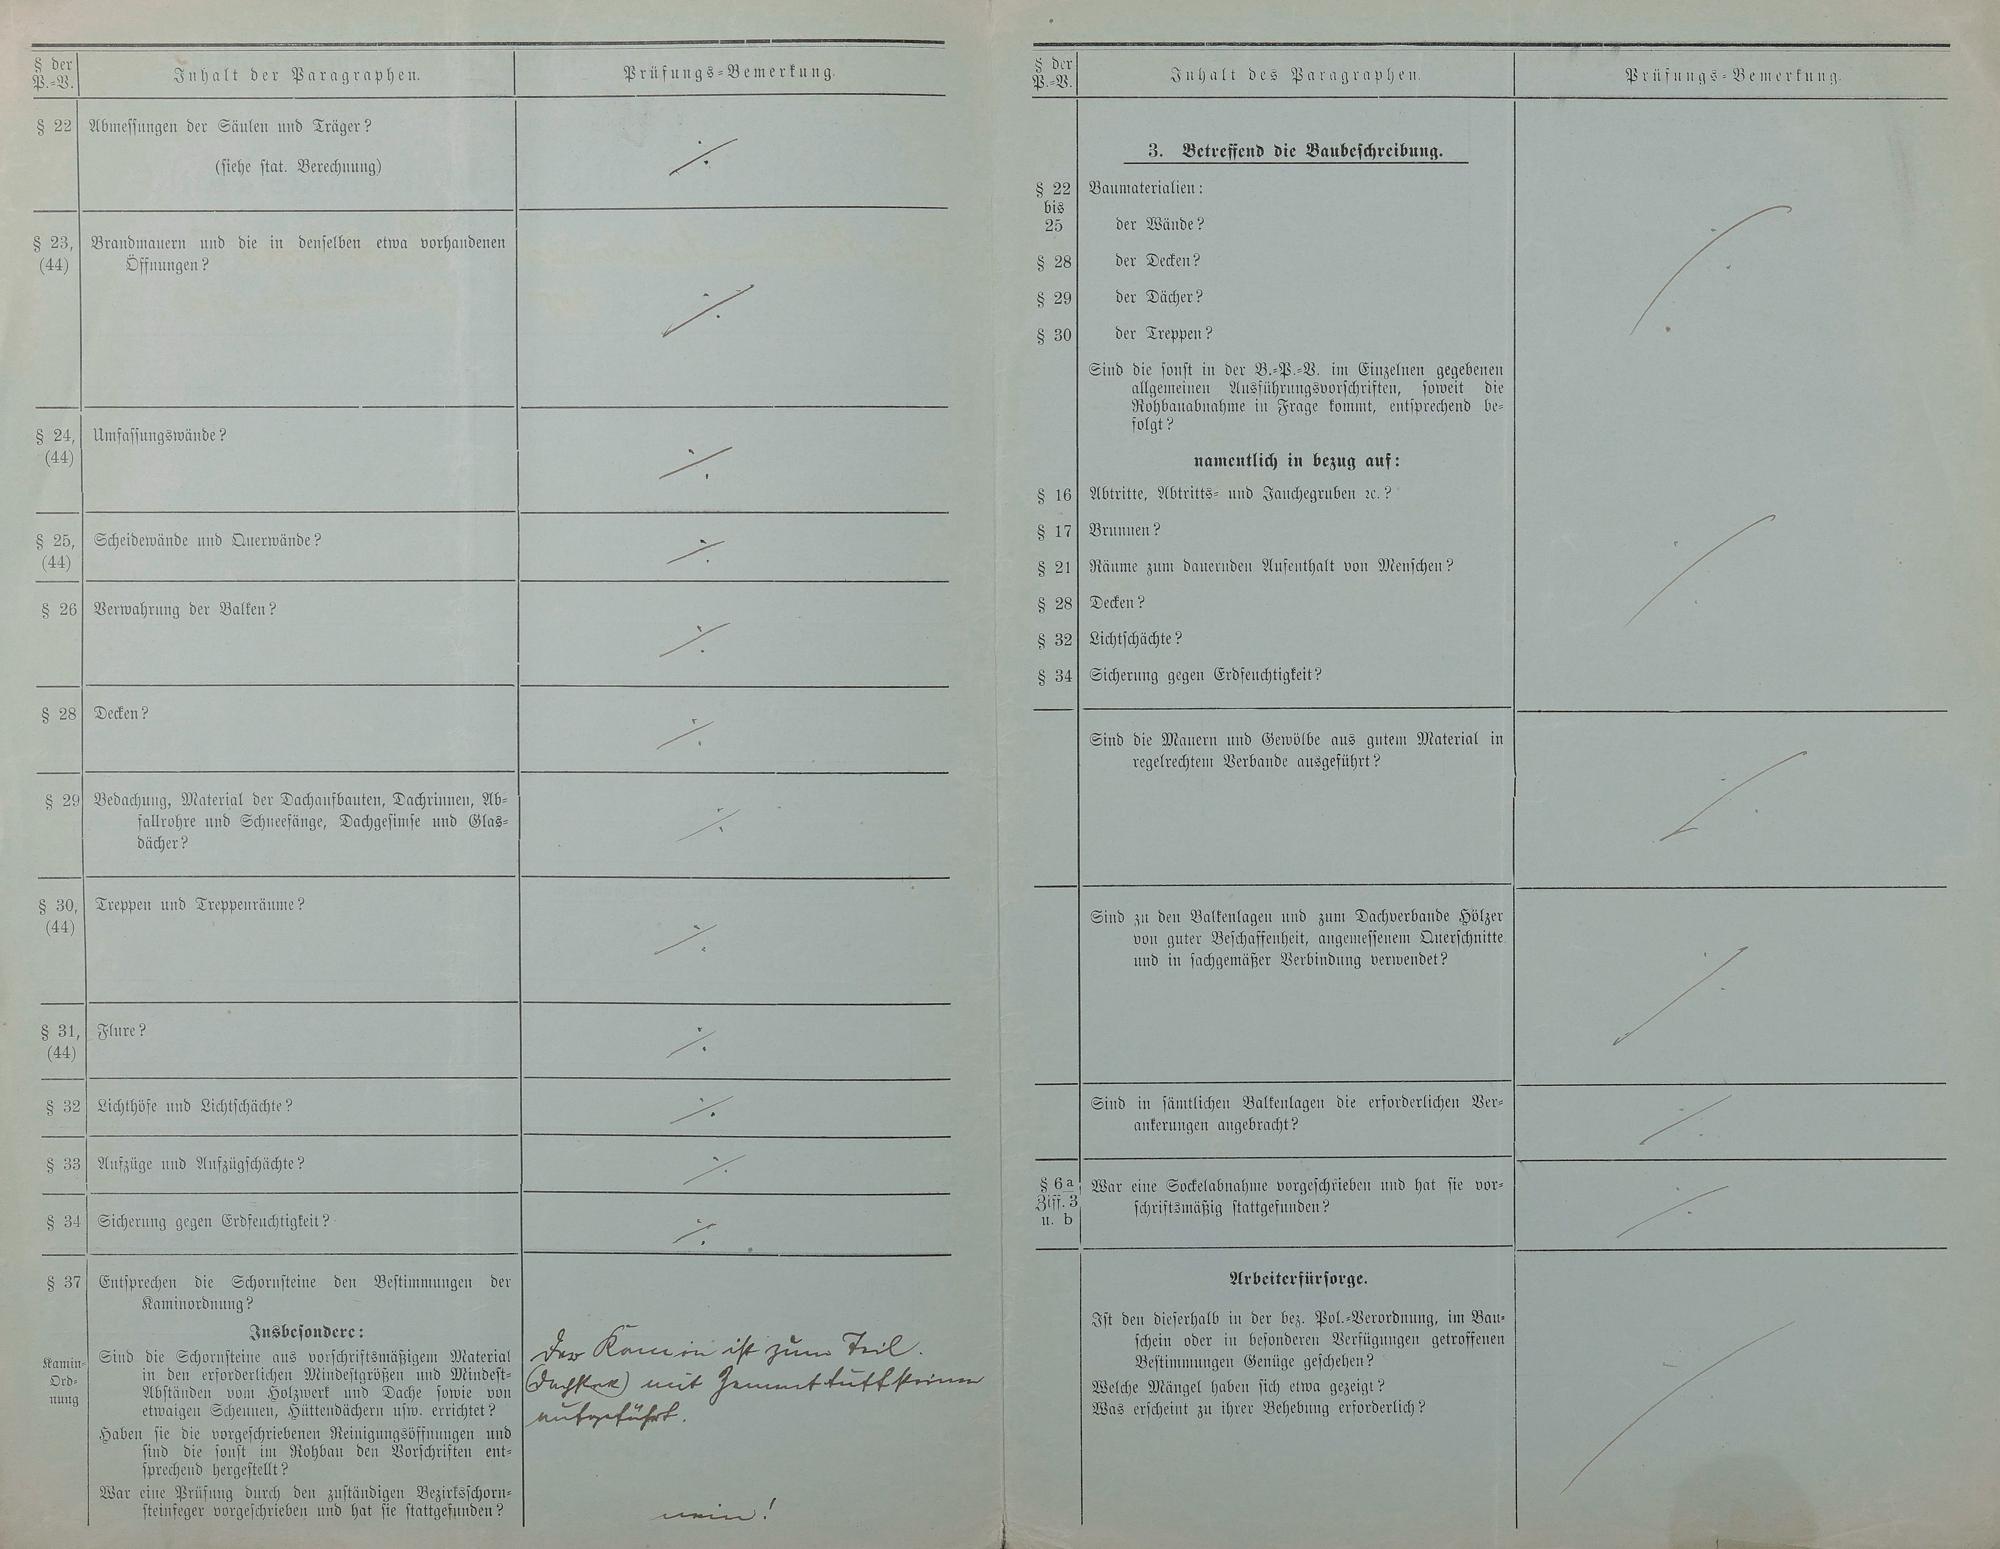 § der
P.-V.
Inhalt der Paragraphen.
Prüfungs-Bemerkung.
§ 22
Abmessungen der Säulen und Träger?
(siehe stat. Berechnung)
⁒
§ 23,
(44)
Brandmauern und die in denselben etwa vorhandenen
Öffnungen?
⁒
§ 24,
(44)
Umfassungswände?
⁒
§ 25,
(44)
Scheidewände und Querwände?
⁒
§ 26
Verwahrung der Balken?
⁒
§ 28
Decken?
⁒
§ 29
Bedachung, Material der Dachaufbauten, Dachrinnen, Ab-
fallrohre und Schneefänge, Dachgesimse und Glas-
dächer?
⁒
§ 30,
(44)
Treppen und Treppenräume?
⁒
§ 31,
(44)
Flure?
⁒
§ 32
Lichthöfe und Lichtschächte?
⁒
§ 33
Aufzüge und Aufzügschächte?
⁒
§ 34
Sicherung gegen Erdfeuchtigkeit?
⁒
§ 37
Entsprechen die Schornsteine den Bestimmungen der
Kaminordnung?
Insbesondere:
Kamin-
Ord-
nung
Sind die Schornsteine aus vorschriftsmäßigem Material
in den erforderlichen Mindestgrößen und Mindest-
Abständen vom Holzwerk und Dache sowie von
etwaigen Scheunen, Hüttendächern usw. errichtet?
Der Kamin ist zum Teil
(Dachstock) mit Zementtuffsteinen
aufgeführt.
Haben sie die vorgeschriebenen Reinigungsöffnungen und
sind die sonst im Rohbau den Vorschriften ent-
sprechend hergestellt?
War eine Prüfung durch den zuständigen Bezirksschorn-
steinfeger vorgeschrieben und hat sie stattgefunden?
nein!
§ der
P.-V.
Inhalt des Paragraphen.
Prüfungs-Bemerkung.
3. Betreffend die Baubeschreibung.
§ 22
bis
25
Baumaterialien:
der Wände?
§ 28
der Decken?
§ 29
der Dächer?
§ 30
der Treppen?
⁒
Sind die sonst in der B.-P.-V. im Einzelnen gegebenen
allgemeinen Ausführungsvorschriften, soweit die
Rohbauabnahme in Frage kommt, entsprechend be-
folgt?
namentlich in bezug auf:
§ 16
Abtritte, Abtritts- und Jauchegruben ꝛc.?
§ 17
Brunnen?
§ 21
Räume zum dauernden Aufenthalt von Menschen?
§ 28
Decken?
§ 32
Lichtschächte?
§ 34
Sicherung gegen Erdfeuchtigkeit?
⁒
Sind die Mauern und Gewölbe aus gutem Material in
regelrechtem Verbande ausgeführt?
⁒
Sind zu den Balkenlagen und zum Dachverbande Hölzer
von guter Beschaffenheit, angemessenem Querschnitte
und in sachgemäßer Verbindung verwendet?
⁒
Sind in sämtlichen Balkenlagen die erforderlichen Ver-
ankerungen angebracht?
⁒
§ 6 a
Ziff. 3
u. b
War eine Sockelabnahme vorgeschrieben und hat sie vor-
schriftsmäßig stattgefunden?
⁒
Arbeiterfürsorge.
Ist den dieserhalb in der bez. Pol.-Verordnung, im Bau-
schein oder in besonderen Verfügungen getroffenen
Bestimmungen Genüge geschehen?
Welche Mängel haben sich etwa gezeigt?
Was erscheint zu ihrer Behebung erforderlich?
⁒